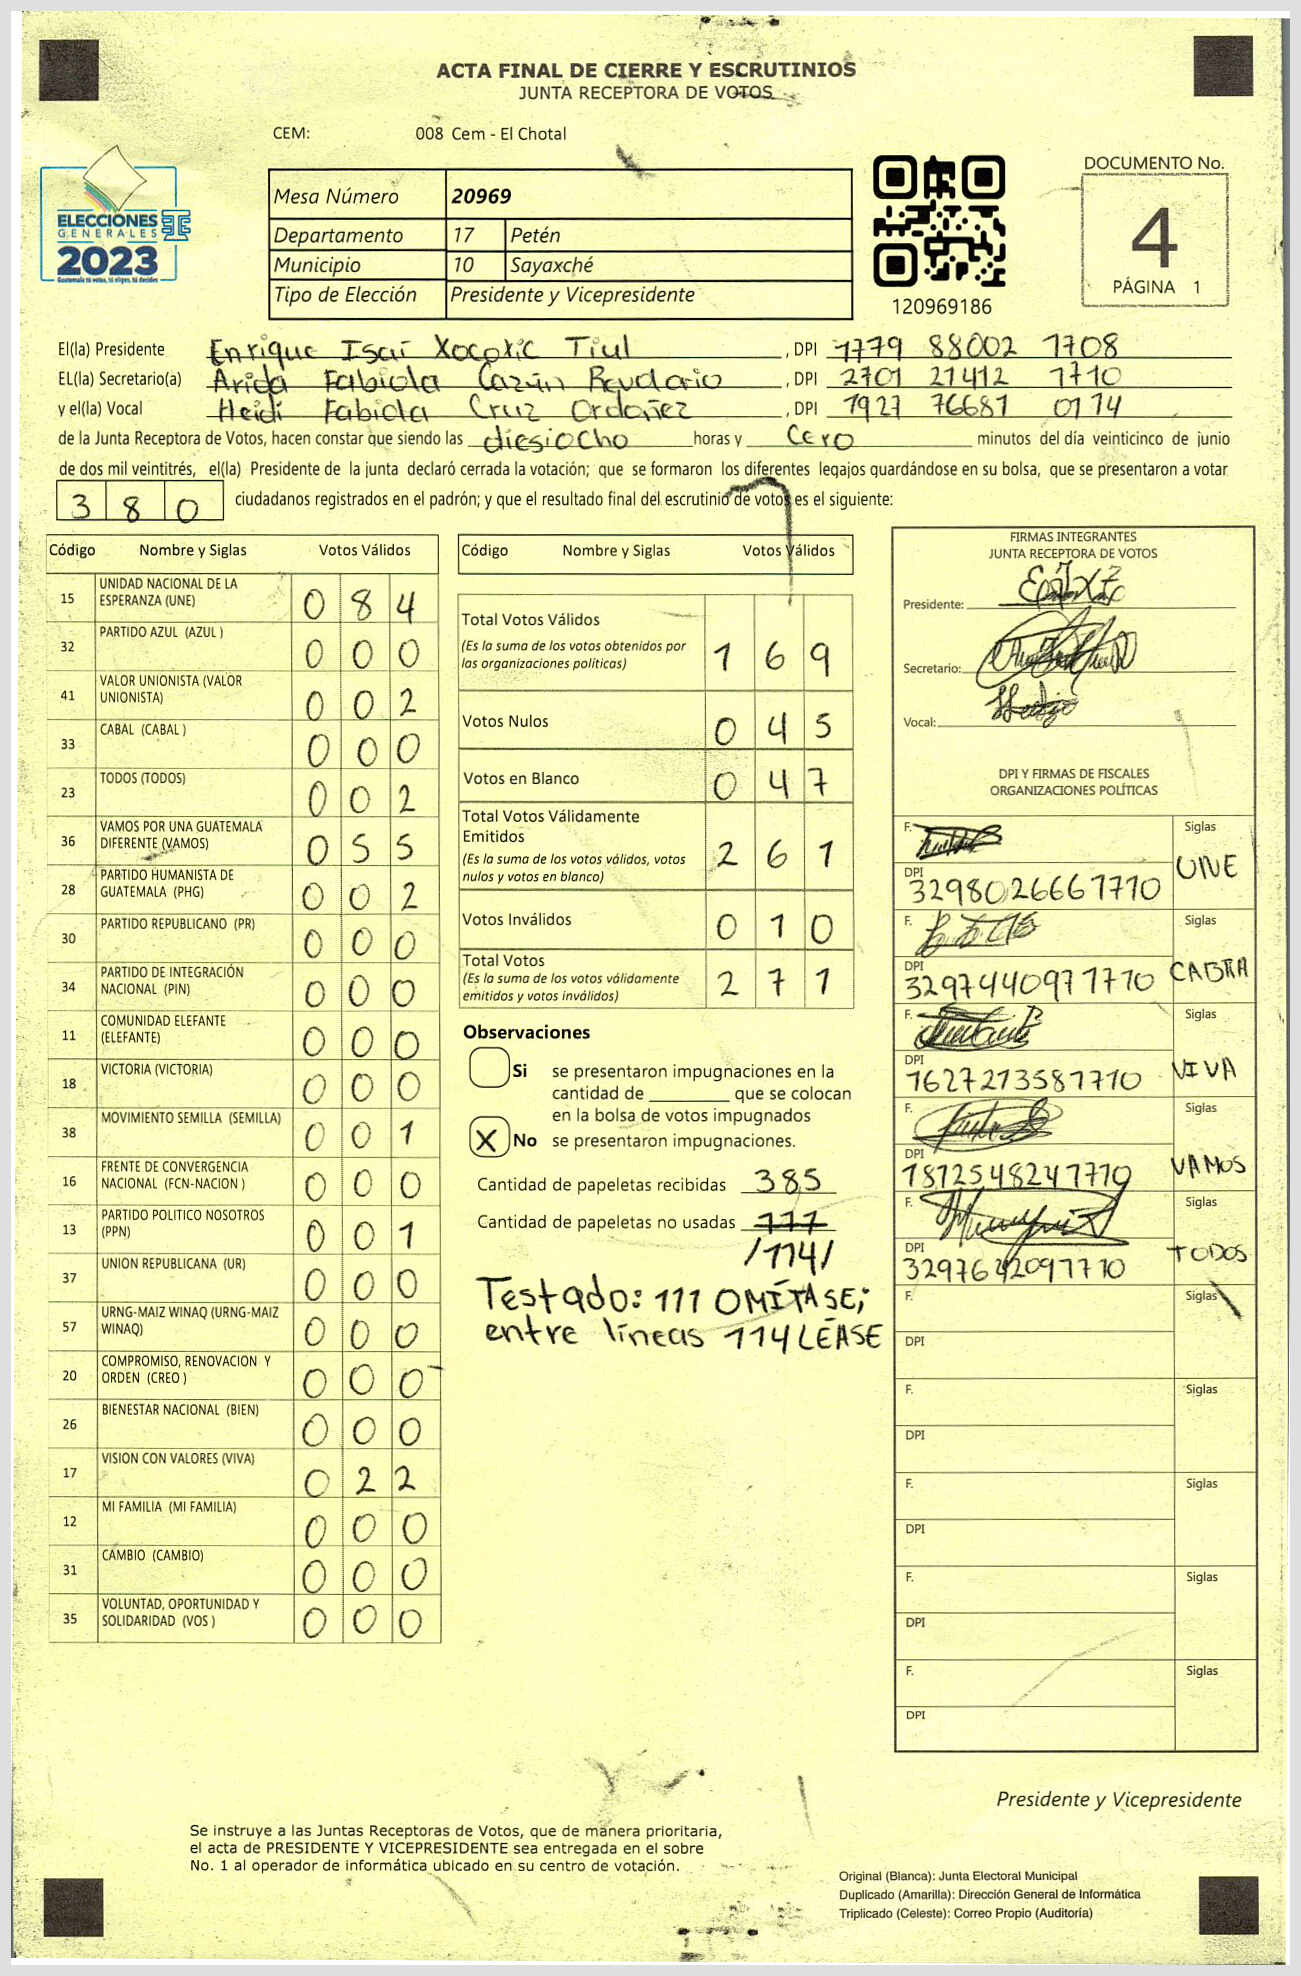 ACTA FINAL DE CIERRE Y ESCRUTINIOS
JUNTA RECEPTORA DE VOTOS
CEM: 008 Cem - El Chotal
ELECCIONES
GENERALES
2023
Guatemala tú votas, tú eliges, tú decides
Mesa Número 20969
Departamento 17 Petén
Municipio 10 Sayaxché
Tipo de Elección Presidente y Vicepresidente
120969186
DOCUMENTO No.
4
PÁGINA 1
El(la) Presidente Enrique Isaí Xocoxic Tiul , DPI 1779 88002 1708
EL(la) Secretario(a) Fabiola Cazún , DPI 2701 21412 1710
y el(la) Vocal Heidi Fabiola Cruz Ordoñez , DPI 1927 76681 0174
de la Junta Receptora de Votos, hacen constar que siendo las diesiocho horas y cero minutos del día veinticinco de junio
de dos mil veintitrés, el(la) Presidente de la junta declaró cerrada la votación; que se formaron los diferentes legajos guardándose en su bolsa, que se presentaron a votar
380 ciudadanos registrados en el padrón; y que el resultado final del escrutinio de votos es el siguiente:
Código Nombre y Siglas Votos Válidos
15 UNIDAD NACIONAL DE LA ESPERANZA (UNE) 0 8 4
32 PARTIDO AZUL (AZUL ) 0 0 0
41 VALOR UNIONISTA (VALOR UNIONISTA) 0 0 2
33 CABAL (CABAL ) 0 0 0
23 TODOS (TODOS) 0 0 2
36 VAMOS POR UNA GUATEMALA DIFERENTE (VAMOS) 0 5 5
28 PARTIDO HUMANISTA DE GUATEMALA (PHG) 0 0 2
30 PARTIDO REPUBLICANO (PR) 0 0 0
34 PARTIDO DE INTEGRACIÓN NACIONAL (PIN) 0 0 0
11 COMUNIDAD ELEFANTE (ELEFANTE) 0 0 0
18 VICTORIA (VICTORIA) 0 0 0
38 MOVIMIENTO SEMILLA (SEMILLA) 0 0 1
16 FRENTE DE CONVERGENCIA NACIONAL (FCN-NACION ) 0 0 0
13 PARTIDO POLITICO NOSOTROS (PPN) 0 0 1
37 UNION REPUBLICANA (UR) 0 0 0
57 URNG-MAIZ WINAQ (URNG-MAIZ WINAQ) 0 0 0
20 COMPROMISO, RENOVACION Y ORDEN (CREO ) 0 0 0
26 BIENESTAR NACIONAL (BIEN) 0 0 0
17 VISION CON VALORES (VIVA) 0 2 2
12 MI FAMILIA (MI FAMILIA) 0 0 0
31 CAMBIO (CAMBIO) 0 0 0
35 VOLUNTAD, OPORTUNIDAD Y SOLIDARIDAD (VOS ) 0 0 0
Código Nombre y Siglas Votos Válidos
Total Votos Válidos 1 6 9
(Es la suma de los votos obtenidos por
las organizaciones políticas)
Votos Nulos 0 4 5
Votos en Blanco 0 4 7
Total Votos Válidamente
Emitidos 2 6 1
(Es la suma de los votos válidos, votos
nulos y votos en blanco)
Votos Inválidos 0 1 0
Total Votos 2 7 1
(Es la suma de los votos válidamente
emitidos y votos inválidos)
Observaciones
Si se presentaron impugnaciones en la
cantidad de ________ que se colocan
en la bolsa de votos impugnados
X No se presentaron impugnaciones.
Cantidad de papeletas recibidas 385
Cantidad de papeletas no usadas 111
/114/
Testado: 111 OMÍTASE;
entre líneas 114 LÉASE
FIRMAS INTEGRANTES
JUNTA RECEPTORA DE VOTOS
Presidente:
Secretario:
Vocal:
DPI Y FIRMAS DE FISCALES
ORGANIZACIONES POLÍTICAS
F. Siglas
DPI 3298026661710 UNE
F. Siglas
DPI 3297440971710
F. Siglas
DPI 1627213581710 VIVA
F. Siglas
DPI 1812548241710 VAMOS
F. Siglas
DPI 3297642091710 TODOS
F. Siglas
DPI
F. Siglas
DPI
F. Siglas
DPI
F. Siglas
DPI
F. Siglas
DPI
Presidente y Vicepresidente
Se instruye a las Juntas Receptoras de Votos, que de manera prioritaria,
el acta de PRESIDENTE Y VICEPRESIDENTE sea entregada en el sobre
No. 1 al operador de informática ubicado en su centro de votación.
Original (Blanca): Junta Electoral Municipal
Duplicado (Amarilla): Dirección General de Informática
Triplicado (Celeste): Correo Propio (Auditoría)